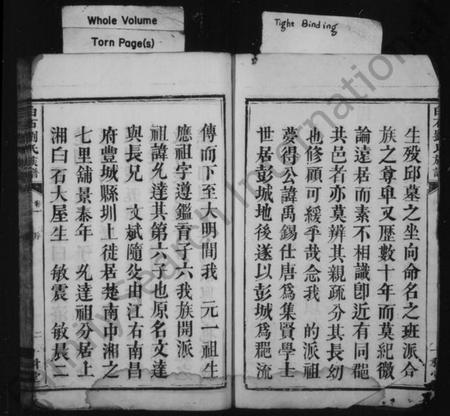 Whole Volume
Torn Page(s)
Tight Binding
生歿邱墓之坐向命名之班派合
族之尊卑又歷數十年而莫紀微
論遠居而素不相識卽近有同
共邑者亦莫辨其親疏分其長幼
也修顧可緩乎哉念我 的派祖
夢得公諱禹錫仕唐爲集賢學士
世居彭城地後遂以彭城爲
傳而下至大明間我 元一祖生
應祖字遵鑑育子六我族開派
祖諱允達其第六子也原名文達
與長兄 文斌隨父由江右南昌
府豐城縣圳上徙居楚南中湘之
七里舖景泰年 允達祖分居上
湘白石大屋生 敏震 敏晨二
白石劉氏族譜